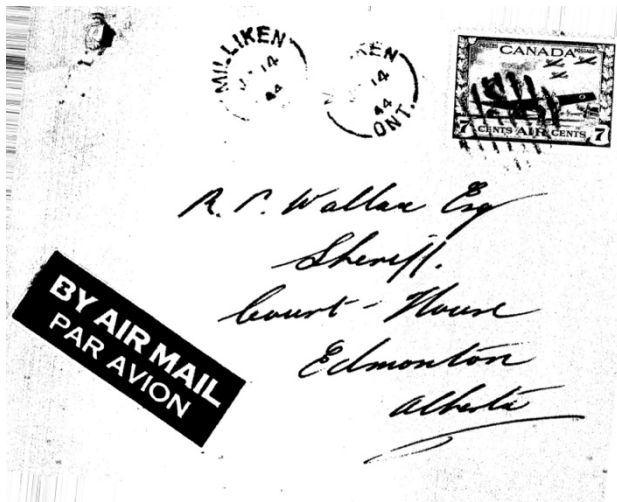 MILLIKEN
14
44
KEN
14
44
ONT.
POSTES CANADA POSTAGE
7 CENTS AIR CENTS 7
R. P. Wallace Esq
Sheriff.
Court-House
Edmonton
Alberta
BY AIR MAIL
PAR AVION